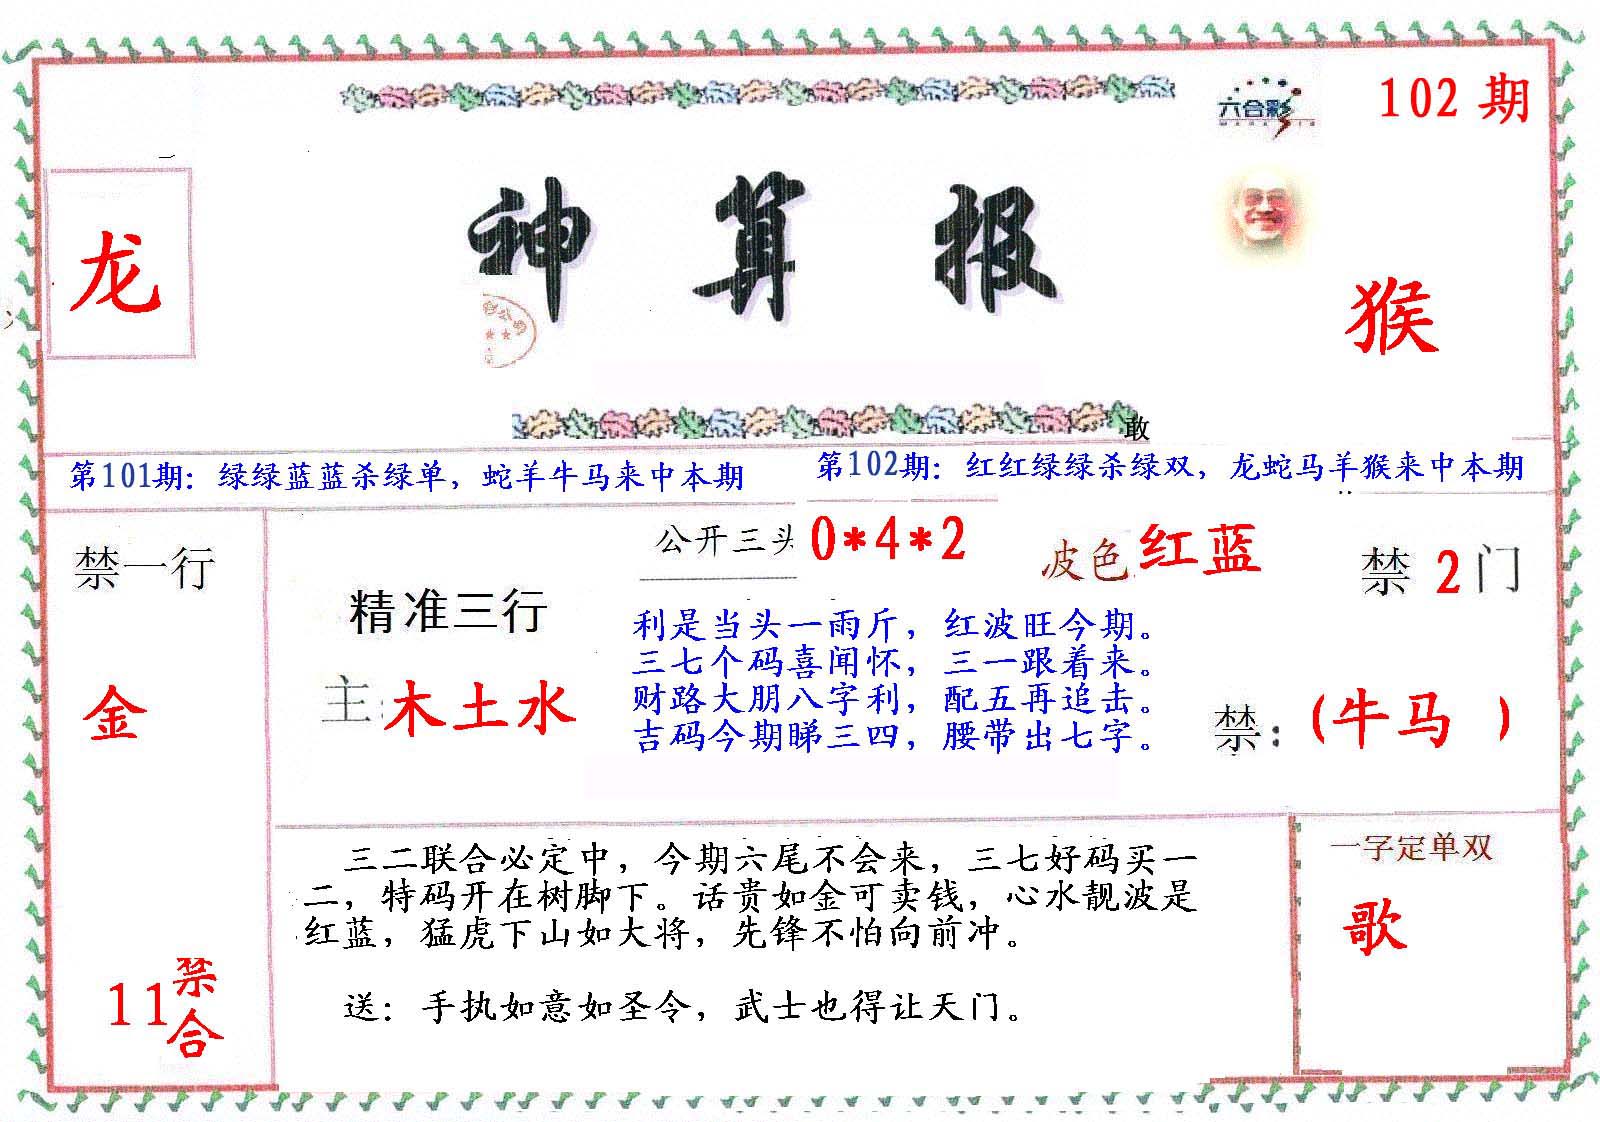 六合彩
102 期
神算报
龙
猴
敢
第101期：绿绿蓝蓝杀绿单，蛇羊牛马来中本期
第102期：红红绿绿杀绿双，龙蛇马羊猴来中本期
禁一行
金
11禁合
精准三行
主:木土水
公开三头 0*4*2
波色 红蓝
禁 2 门
利是当头一雨斤，红波旺今期。
三七个码喜闻怀，三一跟着来。
财路大朋八字利，配五再追击。
吉码今期睇三四，腰带出七字。
禁：(牛马 )
三二联合必定中，今期六尾不会来，三七好码买一
二，特码开在树脚下。话贵如金可卖钱，心水靓波是
红蓝，猛虎下山如大将，先锋不怕向前冲。
送：手执如意如圣令，武士也得让天门。
一字定单双
歌